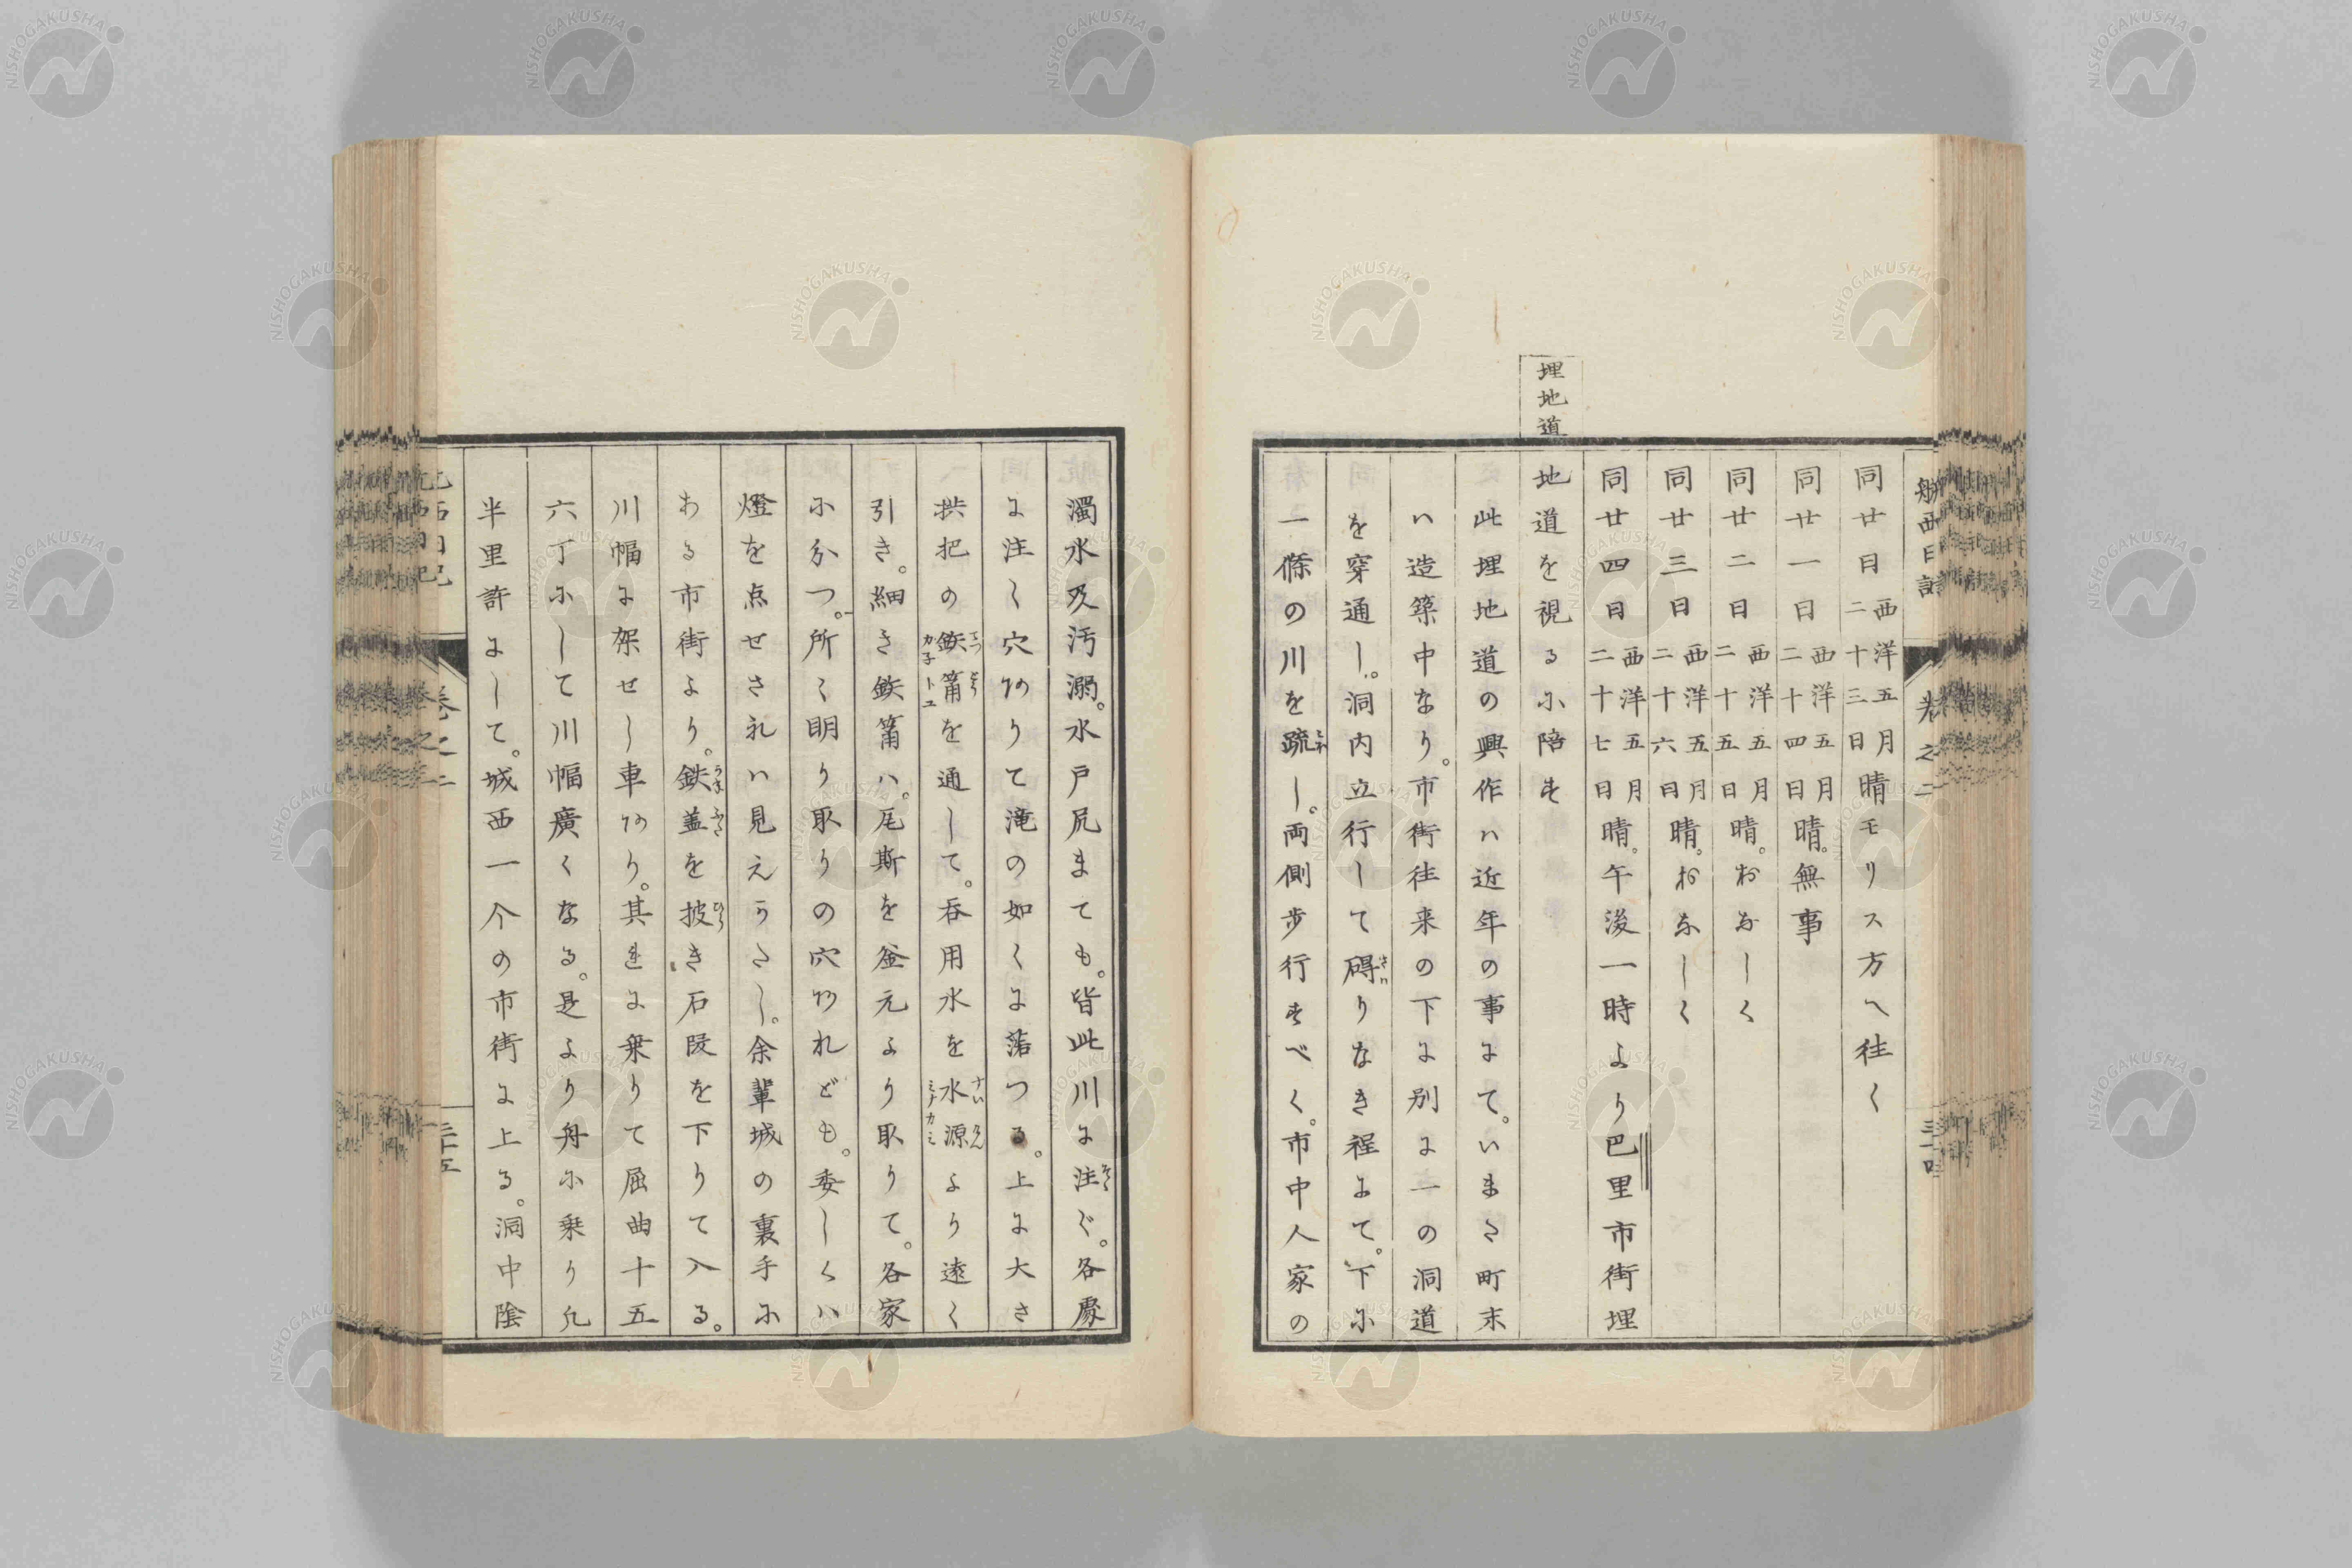 航西日記
巻之二
埋地道
同廿日西洋五月二十三日晴モリス方へ往く
同廿一日西洋五月二十四日晴。無事
同廿二日西洋五月二十五日晴。おなしく
同廿三日西洋五月二十六日晴。おなしく
同廿四日西洋五月二十七日晴。午後一時より巴里市街埋
地道を視るに陪す
此埋地道の興作ハ近年の事にて。いまた町末
ハ造築中なり。市街往来の下に別に一の洞道
を穿通し。洞内立行して碍りなき程にて。下に
一條の川を疏し。両側歩行すべく。市中人家の
濁水及汚溺。水戸尻まても。皆此川に注ぐ。各處
に注く穴ありて滝の如くに落つる。上に大さ
拱把の鉄筩を通して。呑用水を水源より遠く
引き。細き鉄筩ハ。尾斯を釜元より取りて。各家
に分つ。所々明り取りの穴あれども。委しくハ
燈を点せされハ見えかたし。余輩城の裏手に
ある市街より。鉄蓋を披き石段を下りて入る。
川幅に架せし車あり。其車に乗りて屈曲十五
六丁にして川幅廣くなる。是より舟に乗り凡
半里許にして。城西一个の市街に上る。洞中陰
巻之二
三十五
NISHOGAKUSHA